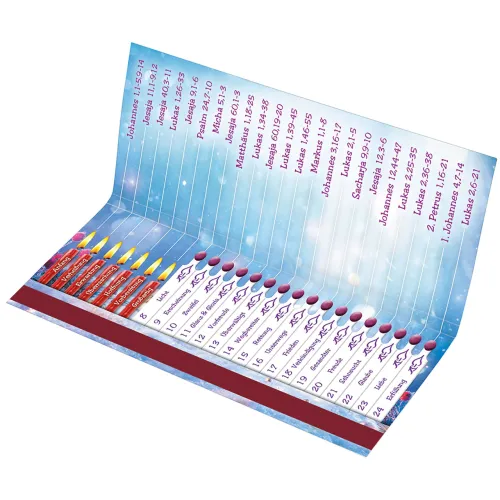 Johannes 1,1-5.9-14
Jesaja 11,1-9.12
Jesaja 40,3-11
Lukas 1,26-33
Jesaja 9,1-6
Psalm 24,7-10
Micha 5,1-3
Jesaja 60,1-3
Matthäus 1,18-25
Lukas 1,34-38
Jesaja 60,19-20
Lukas 1,39-45
Lukas 1,46-55
Markus 1,1-8
Johannes 3,16-17
Lukas 2,1-5
Sacharja 9,9-10
Jesaja 12,3-6
Johannes 12,44-47
Lukas 2,25-35
Lukas 2,36-38
2. Petrus 1,16-21
1. Johannes 4,7-14
Lukas 2,6-21
Anfang
Verheißung
Erwartung
Überraschung
Hoffnung
Vorbereitung
8 Licht
9
10 Zweifel
11
12 Vorfreude
13
14
15 Rettung
16
17 Frieden
18 Verkündigung
19
20 Freude
21 Sehnsucht
22 Glaube
23 Liebe
24 Erfüllung